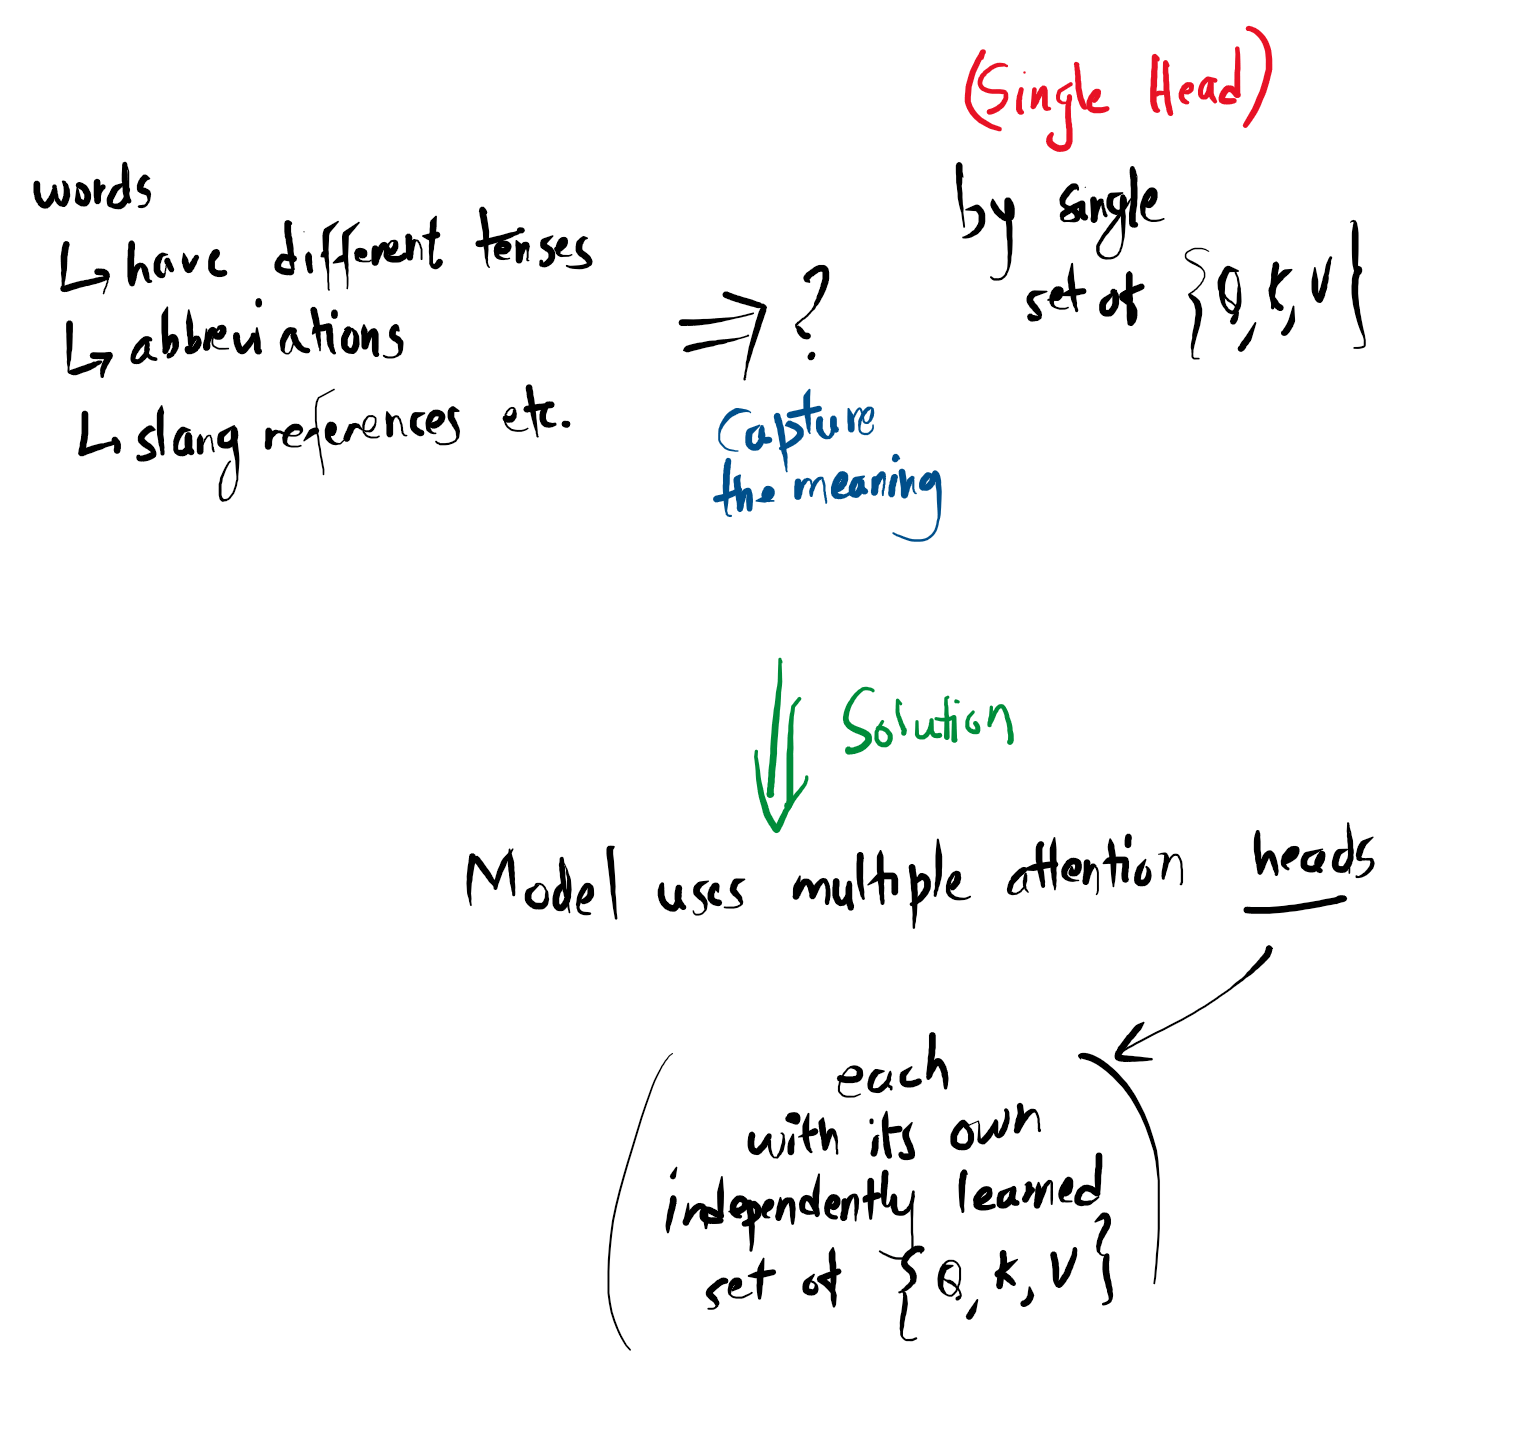 words
↳ have different tenses
↳ abbreviations
↳ slang references etc.
⇒ ?
Capture
the meaning
(Single Head)
by single
set of {Q, K, V}
Solution
Model uses multiple attention heads
(each
with its own
independently learned
set of {Q, K, V})